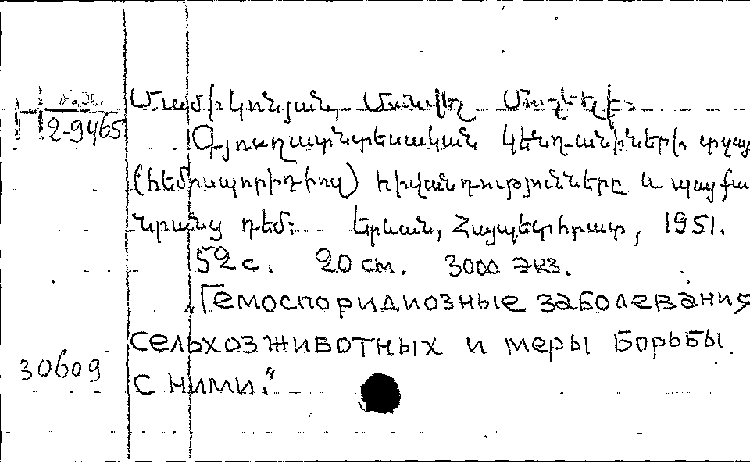 2-9465
Մամիկոնյան, Մանվել
Գյուղատնտեսական կենդանիների արյան
(հեմոսպորիդիոզ) հիվանդությունները և պայքար
նրանց դեմ: Երևան, Հայպետհրատ, 1951.
52 с. 20 см. 3000 экз.
„Гемоспоридиозные заболевания
сельхозживотных и меры борьбы
с ними."
30609